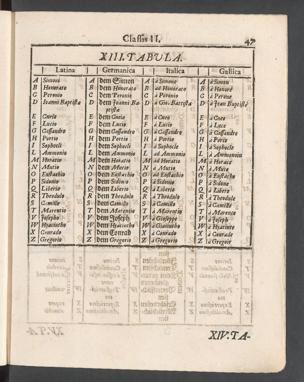 Classis II.
47
XIII. TABULA.
Latina Germanica Italica Gallica
A Simoni A dem Simon A à Simone A à Simon
B Honorato B dem Honorato B ad Honorato B à Honoré
C Petronio C dem Petronio C à Petronio C à Petrone
D Ioanni Baptista D dem Joanni Ba- D à Gio. Battista D à Jean Baptiste
ptista
E Curio E dem Curio E à Curio E à Cure
F Lucio F dem Lucio F à Lucio F à Luce
G Cassandro G dem Cassandro G à Cassandro G à Cassandre
H Portio H dem Portio H à Portio H à Portio
I Sophocli I dem Sophocli I à Sophocle I à Sophocle
L Ammonio L dem Ammonio L ad Ammonio L à Ammonio
M Horatio M dem Horatio M ad Horatio M à Horace
N Mutio N dem Mutio N à Mutio N à Mutio
O Eustachio O dem Eustachio O ad Eustachio O à Eustachio
P Sidonio P dem Sidonio P à Sidonio P à Sidonio
Q Liberio Q dem Liberio Q à Liberio Q à Liberio
R Theodulo R dem Theodulo R à Theodulo R à Theodulo
S Camillo S dem Camillo S à Camillo S à Camille
T Marentio T dem Marentio T à Marentio T à Marentio
V Josepho V dem Joseph V à Gioseppe V à Joseph
W Hyacintho W dem Hyacintho W à Hyacintho W à Hyacinthe
X Conrado X dem Conrad X à Conrado X à Conrade
Z Gregorio Z dem Gregorio Z à Gregorio Z à Gregoire
XIV. TA-